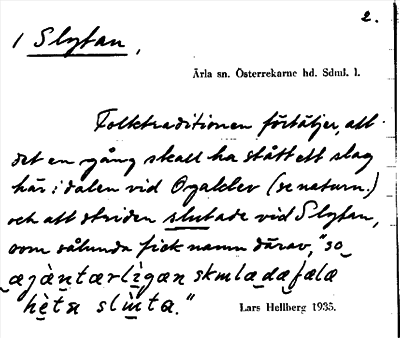 2.
1 Slytan,
Ärla sn. Österrekarne hd. Sdml. 1.
Folktraditionen förtäljer, att
det en gång skall ha stått ett slag
här i dalen vid Ogaklev (se naturn.)
och att striden slutade vid Slytan,
som sålunda fick namn därav, "so
hèta slùta."
Lars Hellberg 1935.